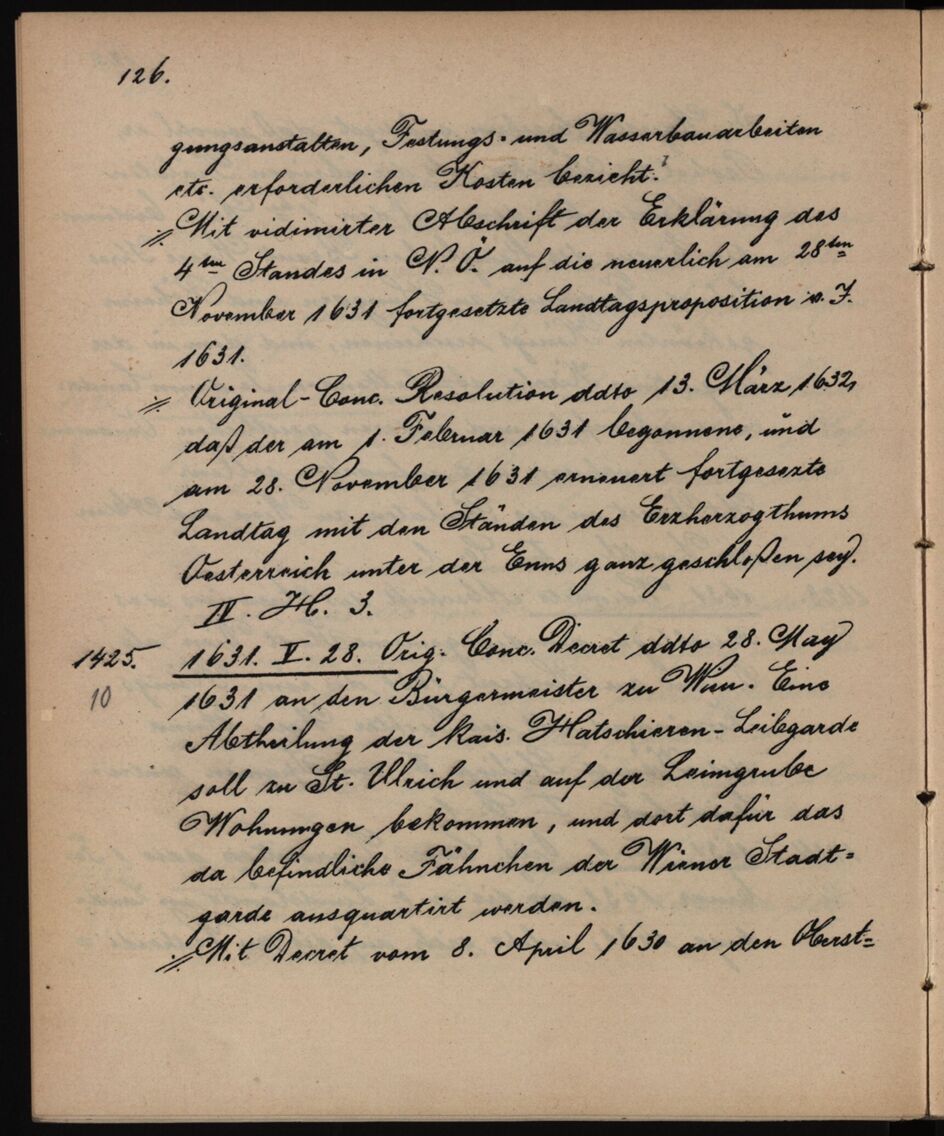 126.
gungsanstalten, Festungs- und Wasserbauarbeiten
etc. erforderlichen Kosten bezieht.
//. Mit vidimirter Abschrift der Erklärung des
4ten Standes in N. Ö. auf die neuerlich am 28ten
November 1631 fortgesetzte Landtagsproposition v. J.
1631.
//. Original-Conc. Resolution ddto 13. März 1632,
daß der am 1. Februar 1631 begonnene, und
am 28. November 1631 erneuert fortgesezte
Landtag mit den Ständen des Erzherzogthums
Oesterreich unter der Enns ganz geschloßen sey.
IV. H. 3.
1425. 1631. V. 28. Orig. Conc. Decret ddto 28. May
10 1631 an den Bürgermeister zu Wien. Eine
Abtheilung der kais. Hatschieren-Leibgarde
soll zu St. Ulrich und auf der Leimgrube
Wohnungen bekommen, und dort dafür das
da befindliche Fähnchen der Wiener Stadt=
garde ausquartirt werden.
//. Mit Decret vom 8. April 1630 an den Oberst=